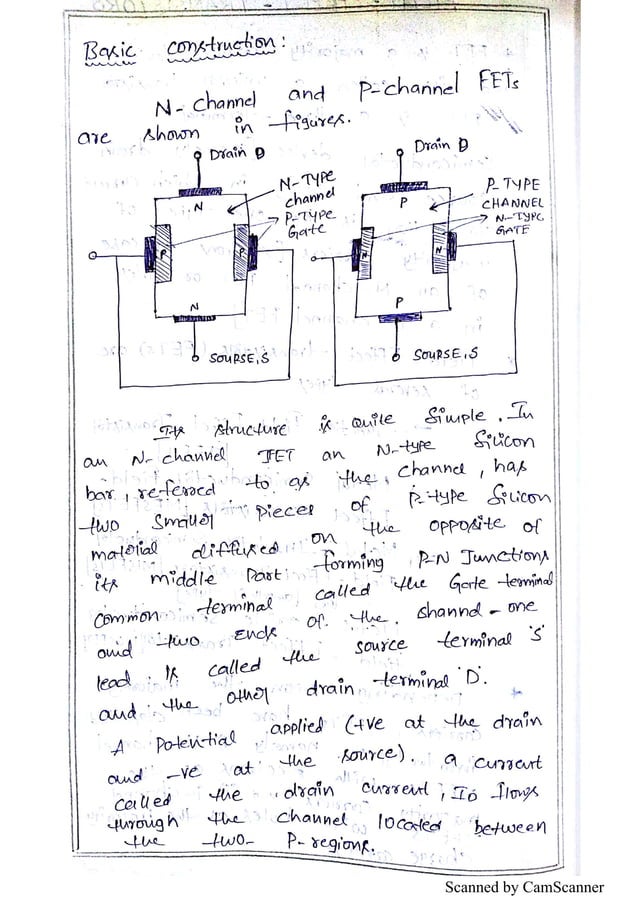 Basic construction:
N-channel and P-channel FETs
are shown in figures.
Drain D
N-TYPE
channel
P-TYPE
Gate
N
P
P
N
SOURSE, S
Drain D
P-TYPE
CHANNEL
N-TYPE
GATE
P
N
N
P
SOURSE, S
Its structure is quite simple. In
an N-channel JFET an N-type Silicon
bar, referred to as the, channel, has
two smaller pieces of P-type Silicon
material diffused on the opposite of
its middle part forming P-N Junctions
common terminal called the Gate terminal
and two ends of the. channel - one
lead is called the source terminal 'S'
and the other drain terminal 'D'.
A potential applied (+ve at the drain
and -ve at the source). a current
called the drain current, ID flows
through the channel located between
the two- P-regions.
Scanned by CamScanner